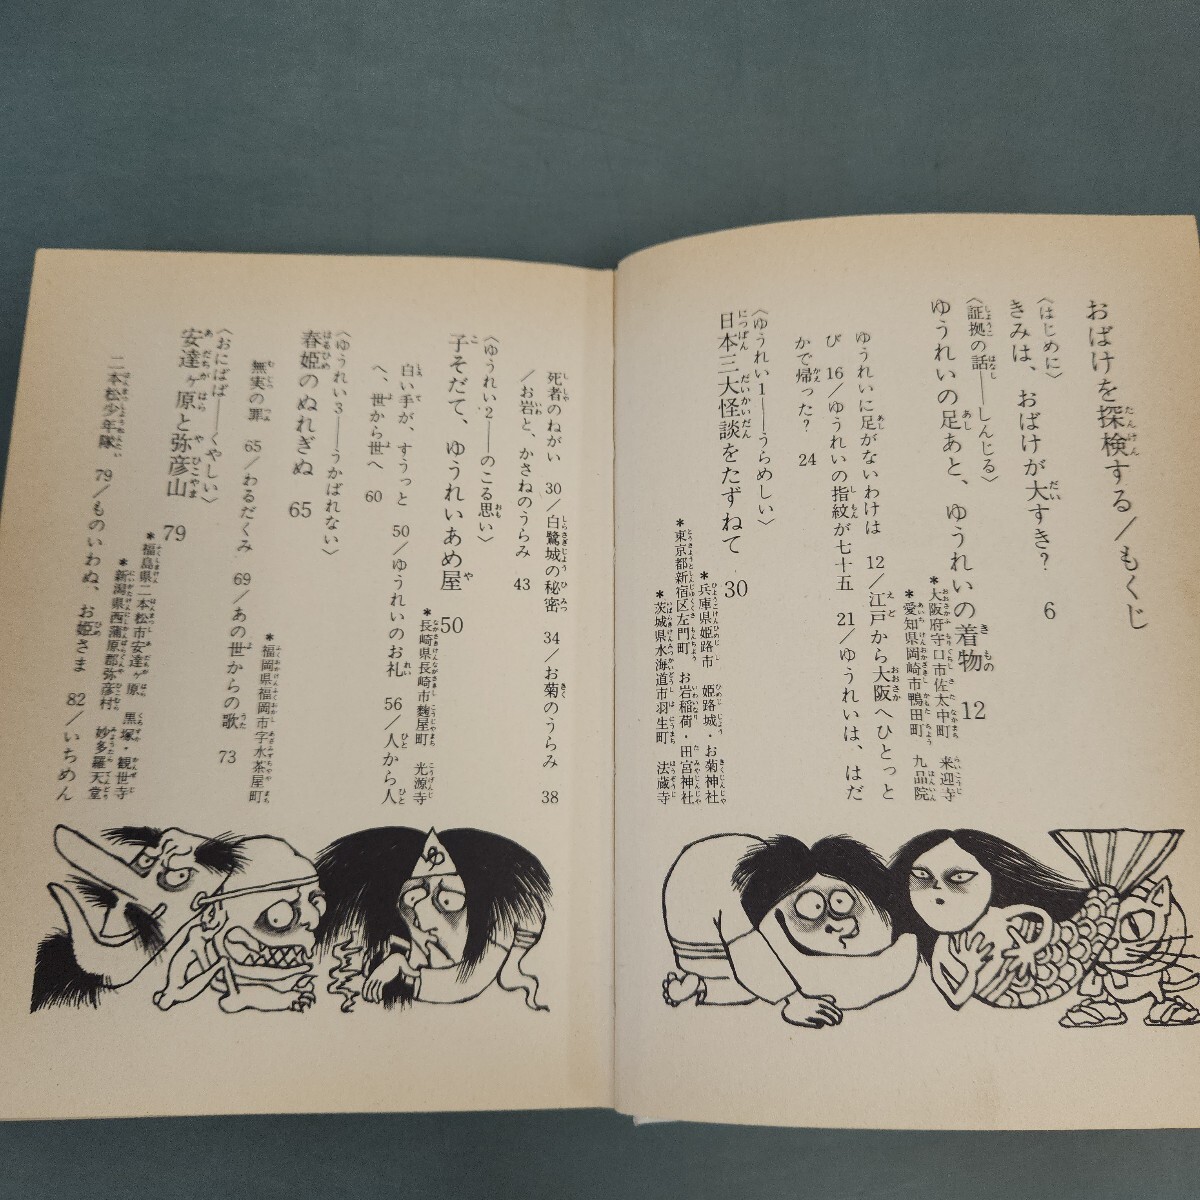 おばけを探検する/もくじ
〈はじめに〉
きみは、おばけが大すき? 6
〈証拠の話——しんじる〉
ゆうれいの足あと、ゆうれいの着物 12
*大阪府守口市佐太中町 来迎寺
*愛知県岡崎市鴨田町 九品院
ゆうれいに足がないわけは 12/江戸から大阪へひとっと
び 16/ゆうれいの指紋が七十五 21/ゆうれいは、はだ
かで帰った? 24
〈ゆうれい1——うらめしい〉
日本三大怪談をたずねて 30
*兵庫県姫路市 姫路城・お菊神社
*東京都新宿区左門町 お岩稲荷・田宮神社
*茨城県水海道市羽生町 法蔵寺
死者のねがい 30/白鷺城の秘密 34/お菊のうらみ 38
/お岩と、かさねのうらみ 43
〈ゆうれい2——のこる思い〉
子そだて、ゆうれいあめ屋 50
*長崎県長崎市麹屋町 光源寺
白い手が、すうっと 50/ゆうれいのお礼 56/人から人
へ、世から世へ 60
〈ゆうれい3——うかばれない〉
春姫のぬれぎぬ 65
*福岡県福岡市字水茶屋町
無実の罪 65/わるだくみ 69/あの世からの歌 73
〈おにばば——くやしい〉
安達ヶ原と弥彦山 79
*福島県二本松市安達ヶ原 黒塚・観世寺
*新潟県西蒲原郡弥彦村 妙多羅天堂
二本松少年隊 79/ものいわぬ、お姫さま 82/いちめん
ゆ